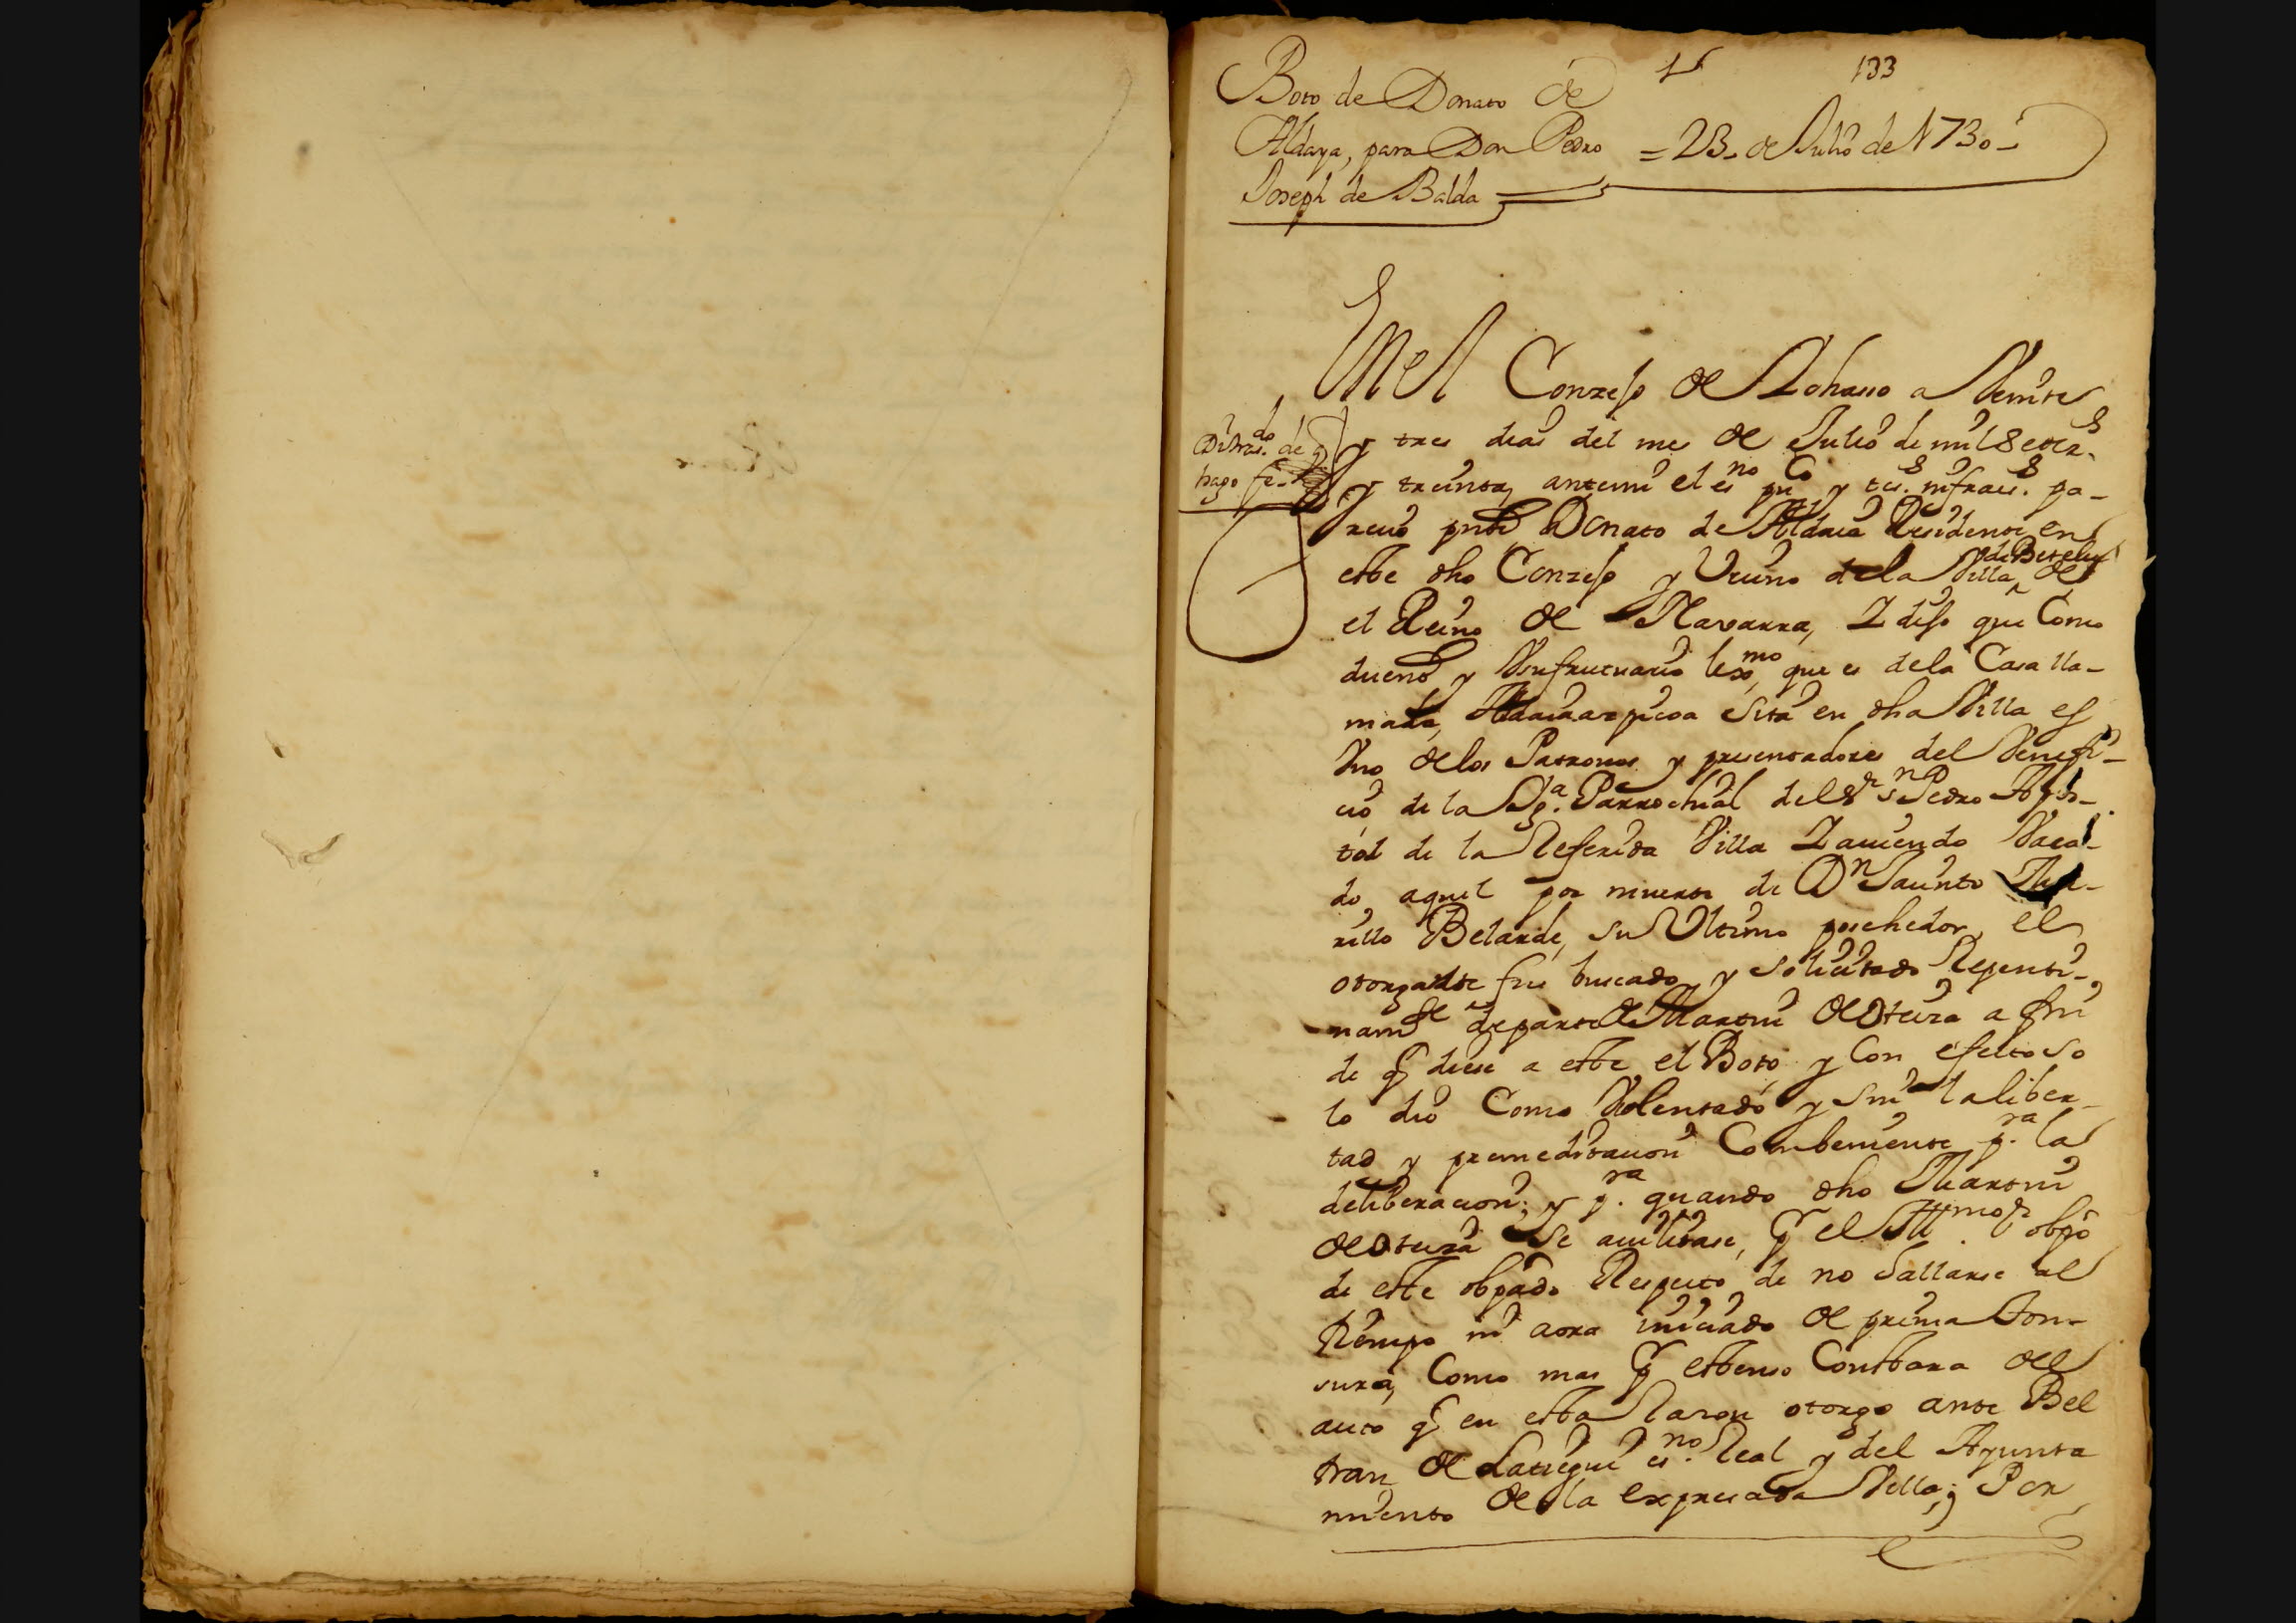 133
Boto de Donato de
Aldaya, para Don Pedro = 23. de Julio de 1730
Joseph de Balda
En el Conzejo de Lohano a Veinte
y tres dias del mes de Julio de mil setez.s
y treinta, antemi el esno puco y tes.s infraes.s pa-
recio pnte Donato de Aldaia Residente en
este dho Conzejo y Vecino de la Villa de Betelu de
el Reino de Navarra, I dijo que Como
dueño y Vsufructuario lexmo, que es dela Casa lla-
mada, Aldaiaazpicoa Sita en dha Villa es
Vno de los Patronos y presentadores del Venefi-
cio de la Yga. Parrochial del Sr Sn Pedro Apos-
tol de la Referida Villa I aviendo Vaca-
do aquel por muerte de Dn Jacinto Mu-
rillo Belarde, su Vltimo posehedor, el
otorgante fue buscado y solicitado Repenti-
namte de parte de Martin de Oteiza a fin
de q diese a este el Boto y Con efecto so
lo dio Como Violentado y sin la liber-
tad y premeditacion Combeniente p.ra la
deliberacion; y p.ra quando dho Martin
de Oteiza se avilitase, q el Illmo Sr obpo
de este obpado Respecto de no allarse al
tiempo ni aora iniciado de prima ton-
sura, Como mas q estenso Constara del
auto q en esta Razon otorgo ante Bel
tran de Latiegui esno. Real y del Ayunta
miento de la expresada Villa; Por
do de q
hago fe